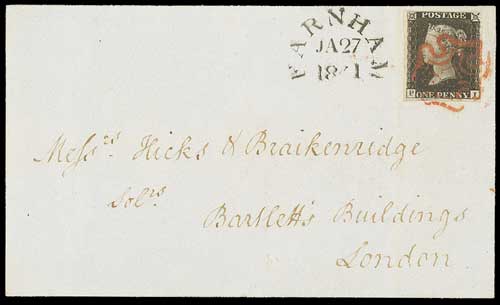 FARNHAM
JA27
1841
POSTAGE
ONE PENNY
Messrs. Hicks & Braikenridge
Solrs
Bartlett's Buildings
London.